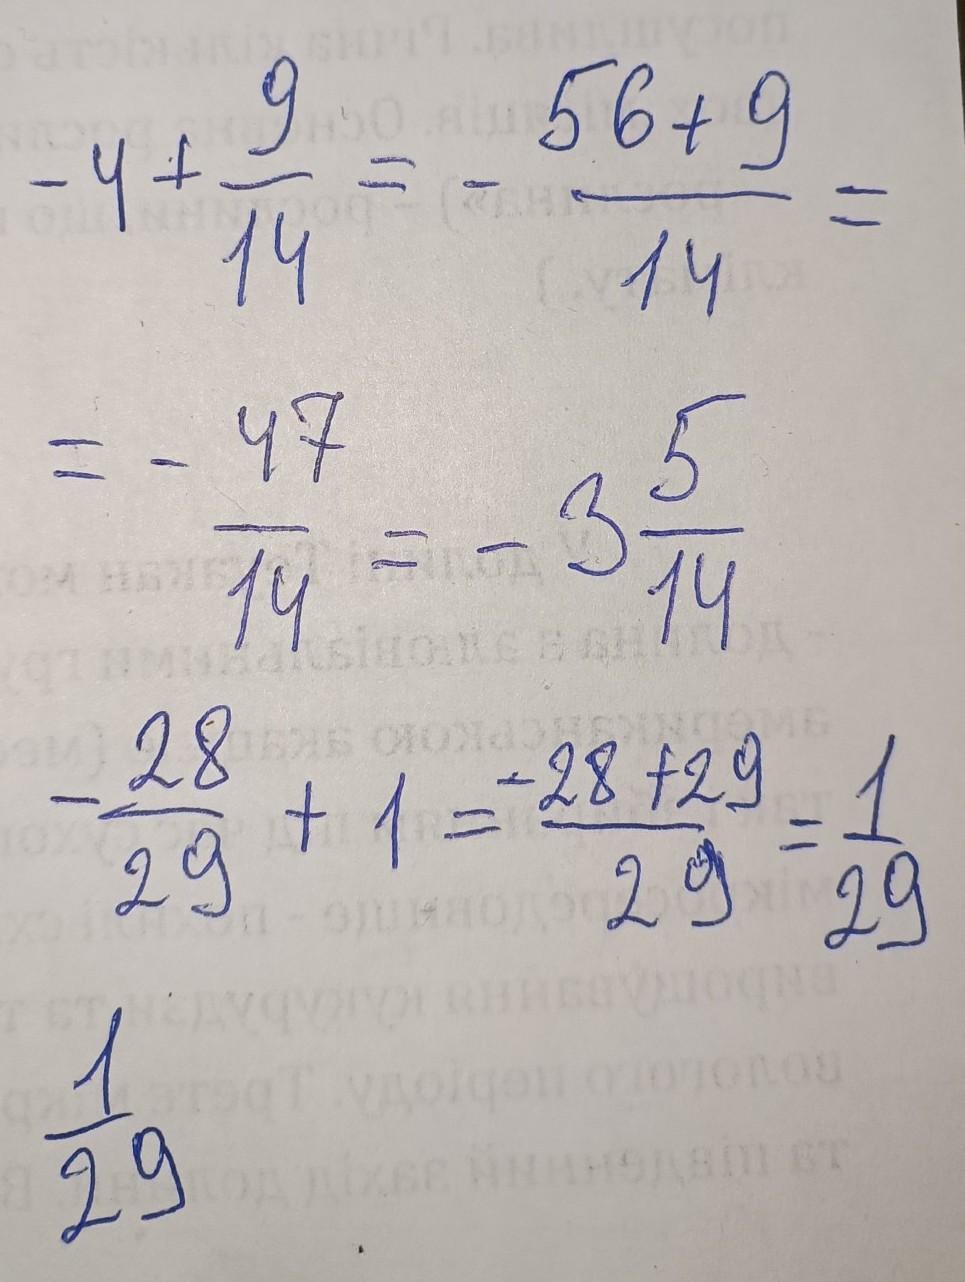 -4 + 9/14 = - 56+9/14 =
= - 47/14 = - 3 5/14
- 28/29 + 1 = -28+29/29 = 1/29
1/29